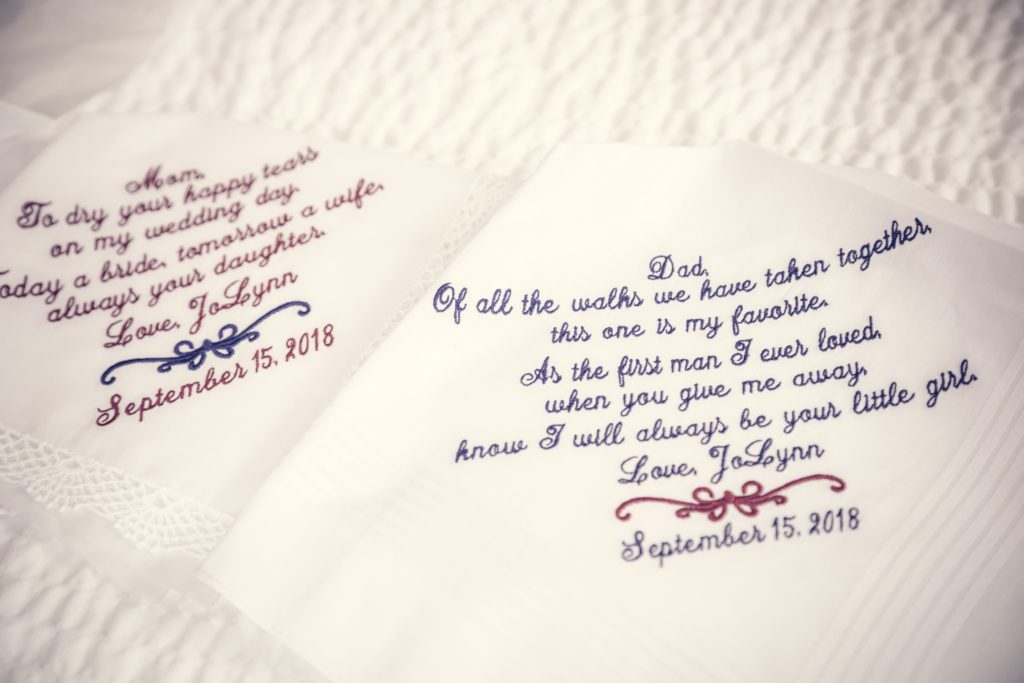 Mom,
To dry your happy tears
on my wedding day.
Today a bride, tomorrow a wife,
always your daughter.
Love, JoLynn
September 15, 2018
Dad,
Of all the walks we have taken together,
this one is my favorite.
As the first man I ever loved,
when you give me away,
know I will always be your little girl.
Love, JoLynn
September 15, 2018